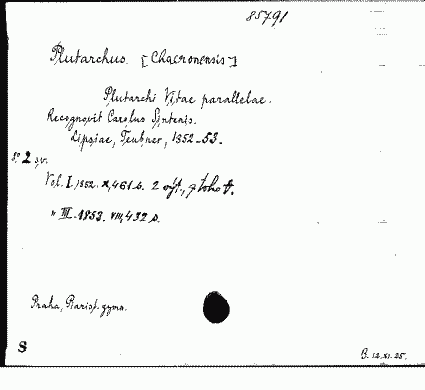 85791
Plutarchus. [Chaeronensis]
Plutarchi Vitae parallelae.
Recognovit Carolus Sintenis.
Lipsiae, Teubner, 1852-53.
8° 2 sv.
Vol. I. 1852. X, 461 s. 2
" III. 1853. VIII, 432 s.
Praha, Piarist. gymn.
S
B. 12.XI.25.